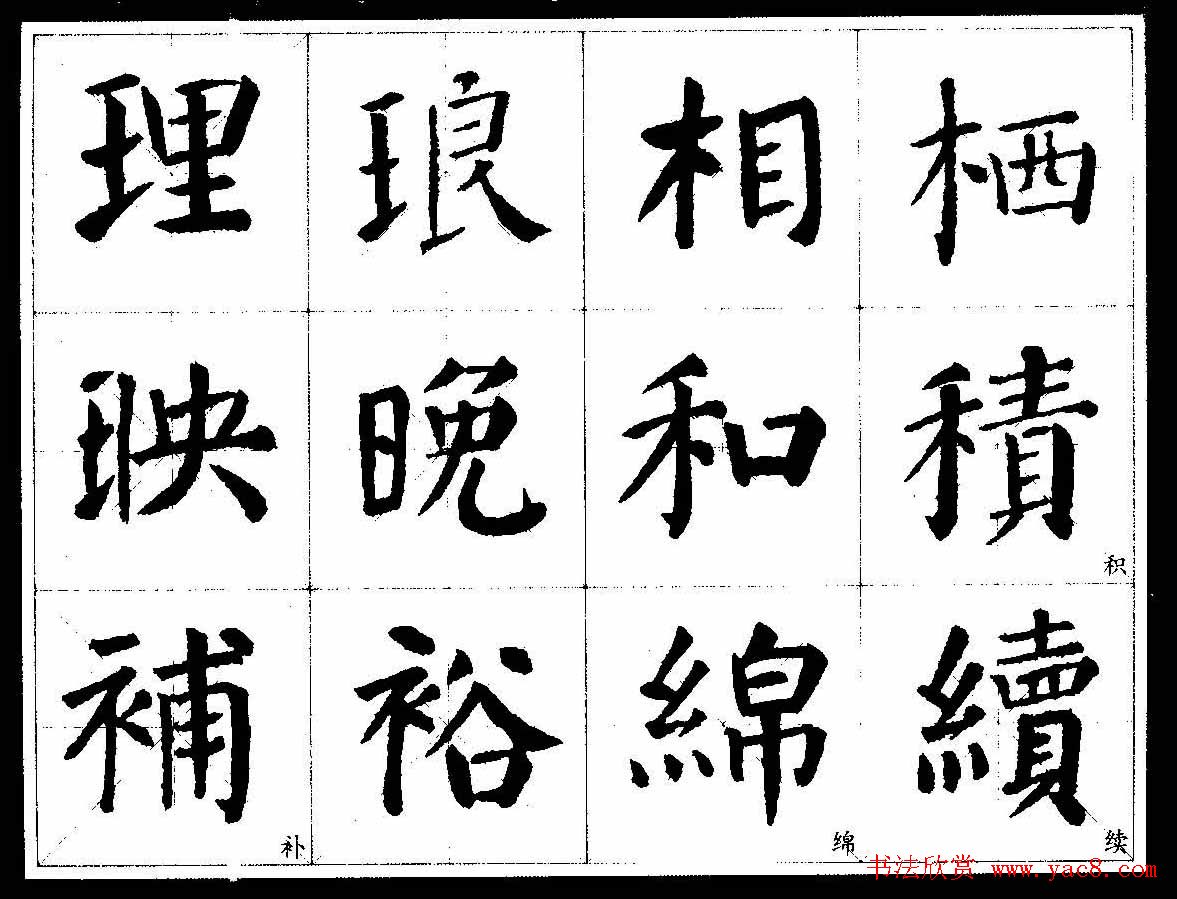 理 琅 相 栖
映 晚 和 積
积
補 裕 綿 續
补 绵 续
书法欣赏 www.yac8.com